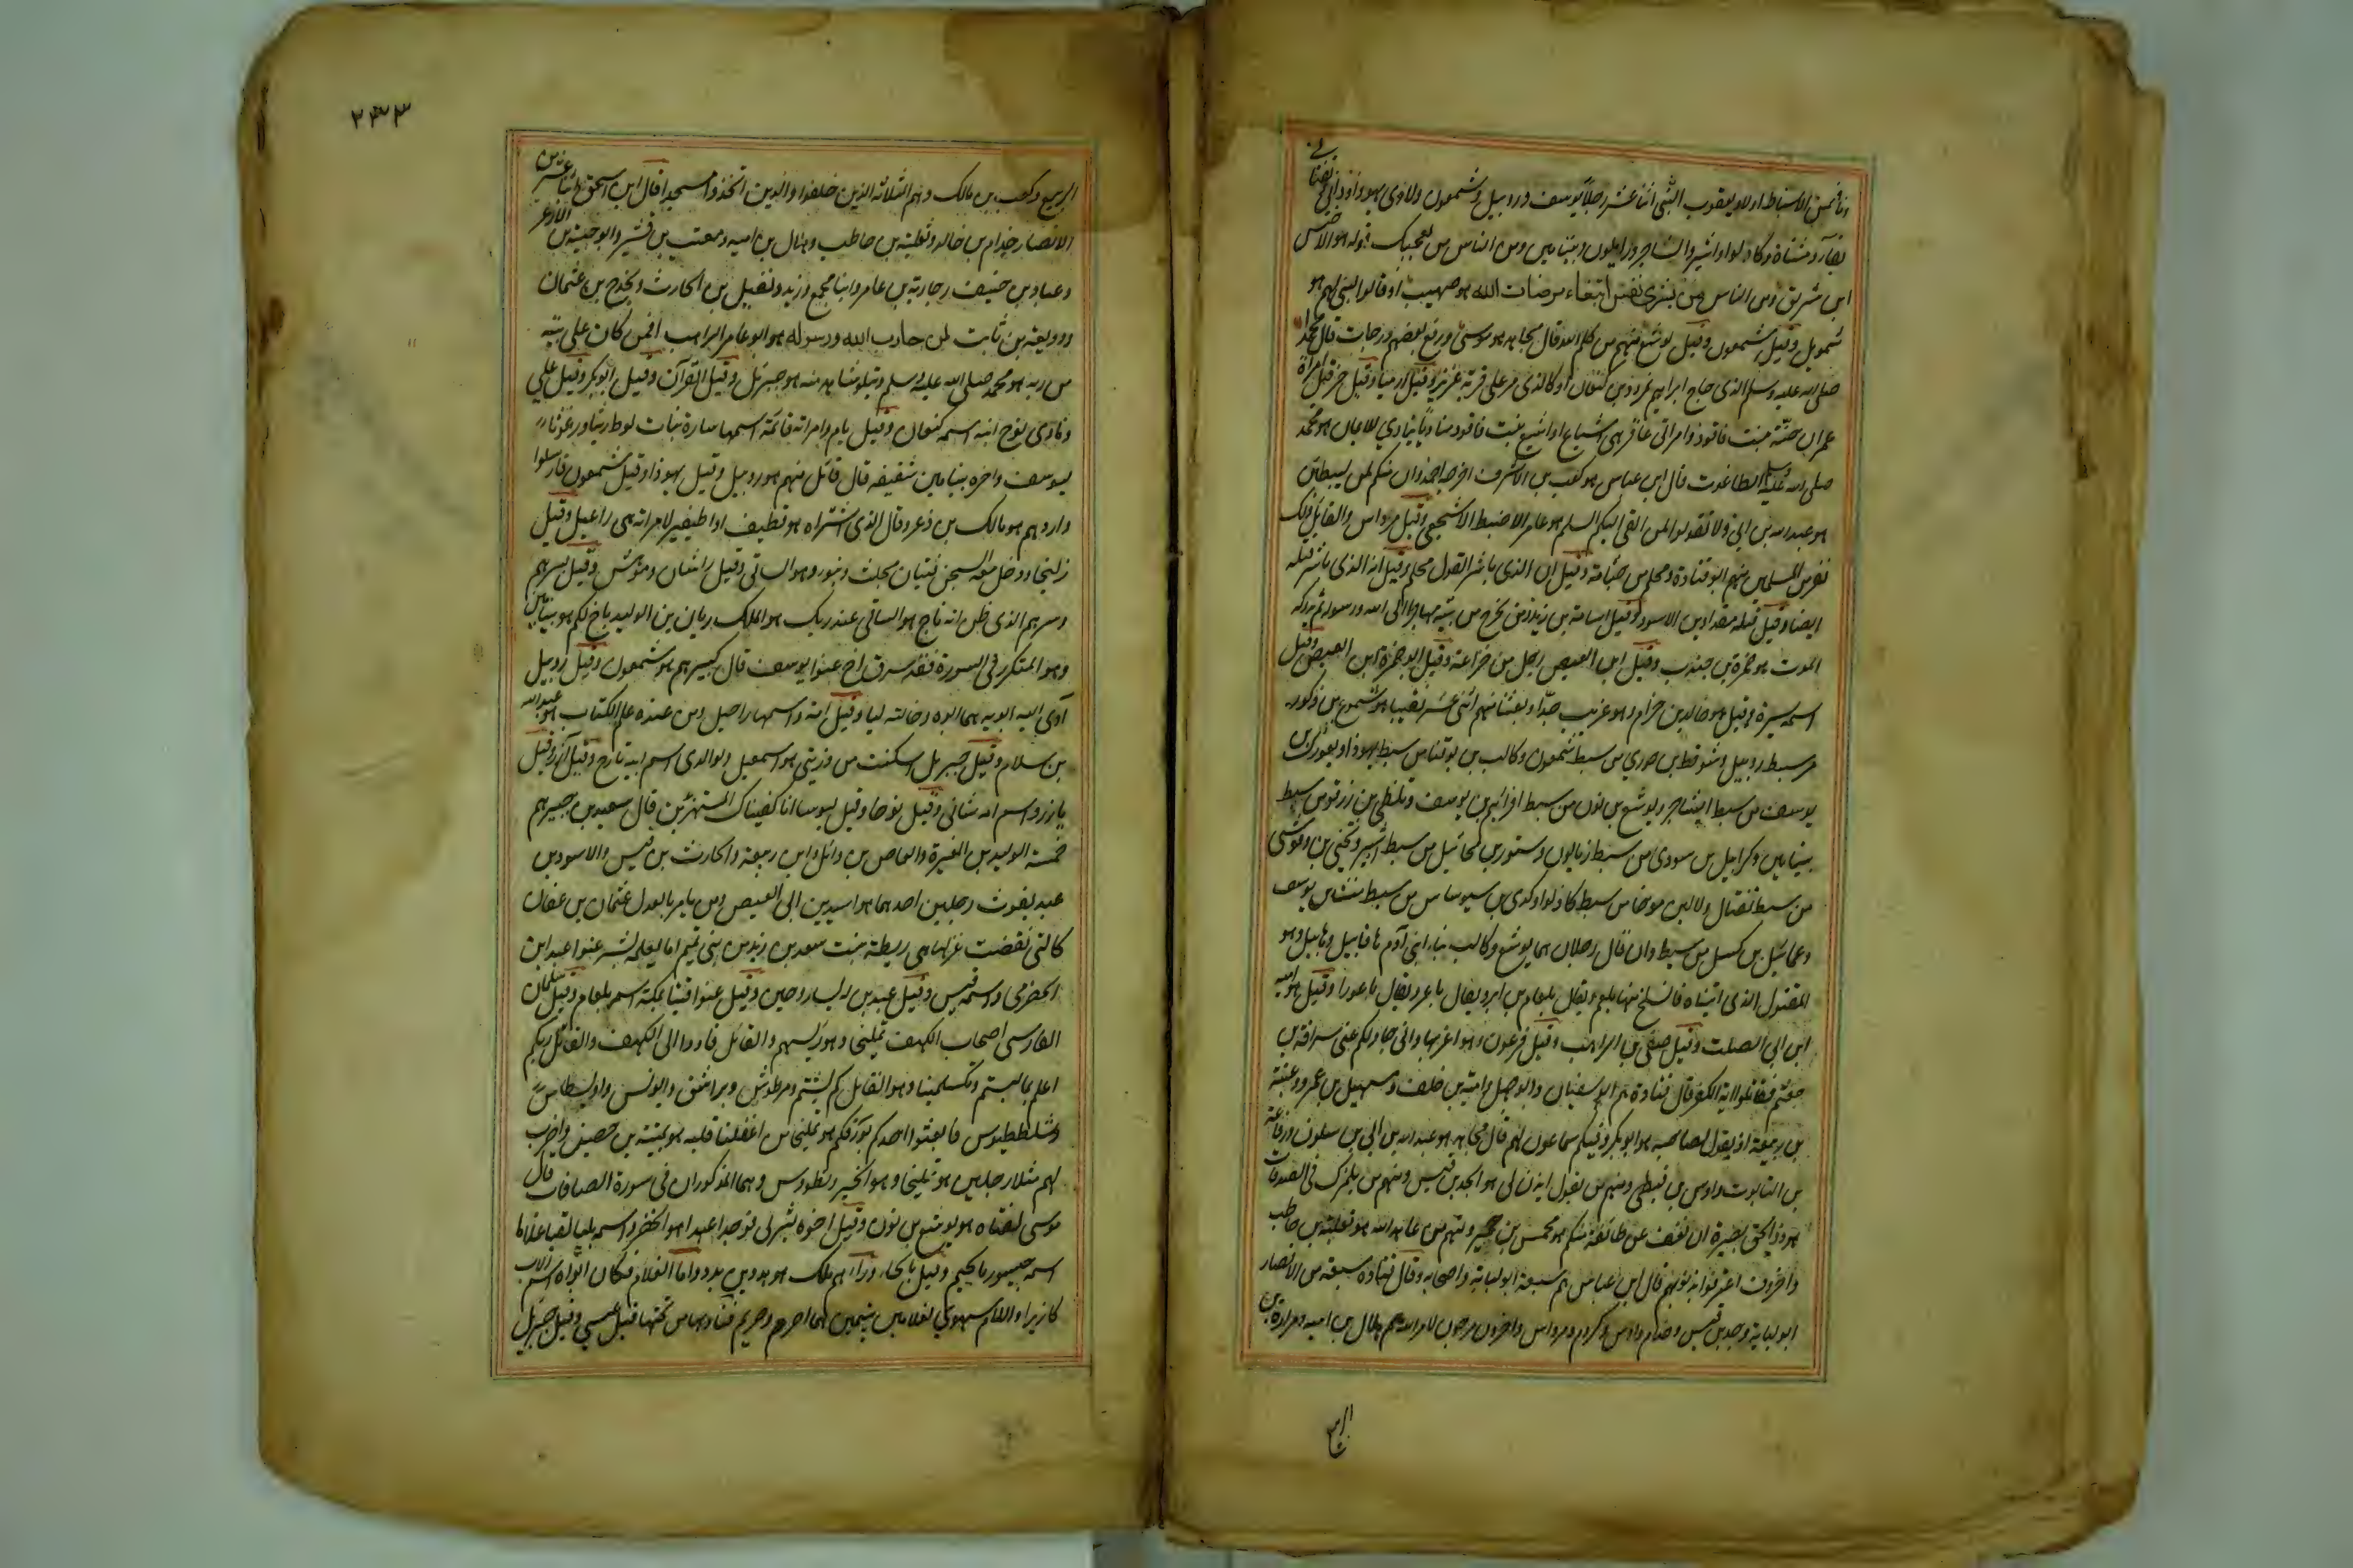 الاسباط اولاد يعقوب اثنا عشر رجلا يوسف وروبيل وشمعون ولاوي ويهودا وداني
ومن الناس من يعجبك قوله هو الاخنس
ابن شريق ومن الناس من يشري نفسه ابتغاء مرضات الله هو صهيب اذ قالوا لنبي لهم هو
شمويل وقيل شمعون وقيل يوشع منهم من كلم الله قال مجاهد هو موسى ورفع بعضهم درجات قال محمدا
صلى الله عليه وسلم الذي حاج ابراهيم نمرود بن كنعان او كالذي مر على قرية عزير وقيل ارميا وقيل حزقيل امراة
عمران حنة بنت فاقوذ وامراتي عاقر هي اشياع او اشيع بنت فاقود مناديا ينادي للايمان هو محمد
صلى الله عليه وسلم الطاغوت قال ابن عباس هو كعب بن الاشرف اخرجه احمد وان منكم لمن ليبطئن
هو عبد الله بن ابي ولا تقولوا لمن القى اليكم السلم هو عامر الاضبط الاشجعي وقيل مرداس والقايل ذلك
نفر من المسلمين منهم ابو قتادة ومحلم بن جثامة وقيل ان الذي باشر القول محلم وقيل انه الذي باشر قتله
ايضا وقيل قتله مقداد بن الاسود وقيل اسامة بن زيد ومن يخرج من بيته مهاجرا الى الله ورسوله ثم يدركه
الموت هو ضمرة بن جندب وقيل ابن العيص رجل من خزاعة وقيل ابو ضمرة ابن العيص وقيل
اسمه سبرة وقيل هو خالد بن حزام وهو غريب جدا وبعثنا منهم اثني عشر نقيبا هو شموع بن زكور
من سبط روبيل وشوقط بن حوري من سبط شمعون وكالب بن يوقنا من سبط يهوذا وبعورك بن
يوسف من سبط ايشاجر ويوشع بن نون من سبط افرائيم بن يوسف وبلطي بن زرقو من سبط
بنيامين وكرابيل بن سودي من سبط زبالون وستور بن محائيل من سبط اشير ويحيى بن وقوسى
من سبط نفتال
قال رجلان هما يوشع وكالب نبا ابني آدم هما قابيل وهابيل وهو
المقتول الذي اتيناه فانسلخ منها بلعم ويقال بلعام بن ابر ويقال باعر ويقال باعورا وقيل هو امية
ابن ابي الصلت وقيل صيفي بن الراهب وقيل فرعون وهو اغربها واني جار لكم عنى سراقة بن
جعشم فقاتلوا ائمة الكفر قال قتادة هم ابو سفيان وابو جهل وامية بن خلف وسهيل بن عمرو وعتبة
بن ربيعة اذ يقول لصاحبه هو ابو بكر وفيكم سماعون لهم قال مجاهد هو عبد الله بن ابي بن سلول ورفاعة
بن التابوت واوس بن قيظي ومنهم من يقول ايذن لي هو الجد بن قيس ومنهم من يلمزك في الصدقات
هو ذو الخويصرة ان نعف عن طائفة منكم هو مخشي بن حمير ومنهم من عاهد الله هو ثعلبة بن حاطب
واخرون اعترفوا بذنوبهم قال ابن عباس هم سبعة ابو لبابة واصحابه وقال قتادة سبعة من الانصار
ابو لبابة وجد بن قيس وخذام واوس وكردم ومرداس واخرون مرجون لامر الله هم هلال بن امية ومرارة بن
۲۴۳
الربيع وكعب بن مالك وهم الثلاثة الذين خلفوا والذين اتخذوا مسجدا قال ابن اسحق اثنا عشر من
الانصار خذام بن خالد وثعلبة بن حاطب وهلال بن امية ومعتب بن قشير وابو حبيبة بن الازعر
وعباد بن حنيف وجارية بن عامر وابنا مجمع وزيد ونبتل بن الحارث وبحزج بن عثمان
ووديعة بن ثابت لمن حارب الله ورسوله هو ابو عامر الراهب افمن كان على بينة
من ربه هو محمد صلى الله عليه وسلم ويتلوه شاهد منه هو جبرئل وقيل القرآن وقيل ابوبكر وقيل علي
ونادى نوح ابنه اسمه كنعان وقيل يام وامراته قائمة اسمها سارة بنات لوط ريثا ورغوثا
ليوسف واخوه بنيامين شقيقه قال قائل منهم هو روبيل وقيل يهوذا وقيل شمعون فارسلوا
واردهم هو مالك بن ذعر وقال الذي اشتراه هو قطيفر او اطيفير لامراته هي راعيل وقيل
زليخا ودخل معه السجن فتيان مجلث ونبور وهو الساقي وقيل راشان ومرطش وقيل بسرهم
وسرهم الذي ظن انه ناج هو الساقي عند ربك هو الملك ريان بن الوليد باخ لكم هو بنيامين
وهو المتكرر في السورة فقد سرق اخ عنوا يوسف قال كبيرهم هو شمعون وقيل روبيل
آوى اليه ابويه هما ابوه وخالته ليا وقيل امه واسمها راحيل ومن عنده علم الكتاب هو عبد الله
بن سلام وقيل جبريل اسكنت من ذريتي هو اسمعيل ولوالدي اسم ابيه تارح وقيل آزر وقيل
يازر واسم امه مثاني وقيل نوفا وقيل ليوسا انا كفيناك المستهزئين قال سعيد بن جبير هم
خمسة الوليد بن المغيرة والعاص بن وائل وابن ربيعة والحارث بن قيس والاسود بن
عبد يغوث رجلين احدهما هو اسيد بن ابي العيص ومن يامر بالعدل عثمان بن عفان
كالتي نقضت غزلها هي ريطة بنت سعد بن زيد من بني تميم انما يعلمه بشر عنوا عبد ابن
الحضرمي واسمه قيس وقيل عبدين له يسار وجبر وقيل عنوا قينا بمكة اسمه بلعام وقيل سلمان
الفارسي اصحاب الكهف تمليخا وهو رئيسهم والقائل فاووا الى الكهف والقائل ربكم
اعلم بما لبثتم وتكسلمينا وهو القائل كم لبثتم ومرطوش وبراشق وايونس واويسطاس
وشلططيوس فابعثوا احدكم بورقكم هو تمليخا من اغفلنا قلبه هو عيينة بن حصين واضرب
لهم مثلا رجلين هو تمليخا وهو الخير ونطروس وهما المذكوران في سورة الصافات قال
موسى لفتاه هو يوشع بن نون وقيل اخوه يثربي فوجدا عبدا هو الخضر واسمه بليا لقيا غلاما
اسمه جيسور بالجيم وقيل بالحاء وراءهم ملك هو هدد بن بدد واما الغلام فكان ابواه اسم الاب
كازيرا والام سهوى لغلامين يتيمين هما اصرم وصريم فناداها من تحتها قيل عيسى وقيل جبريل